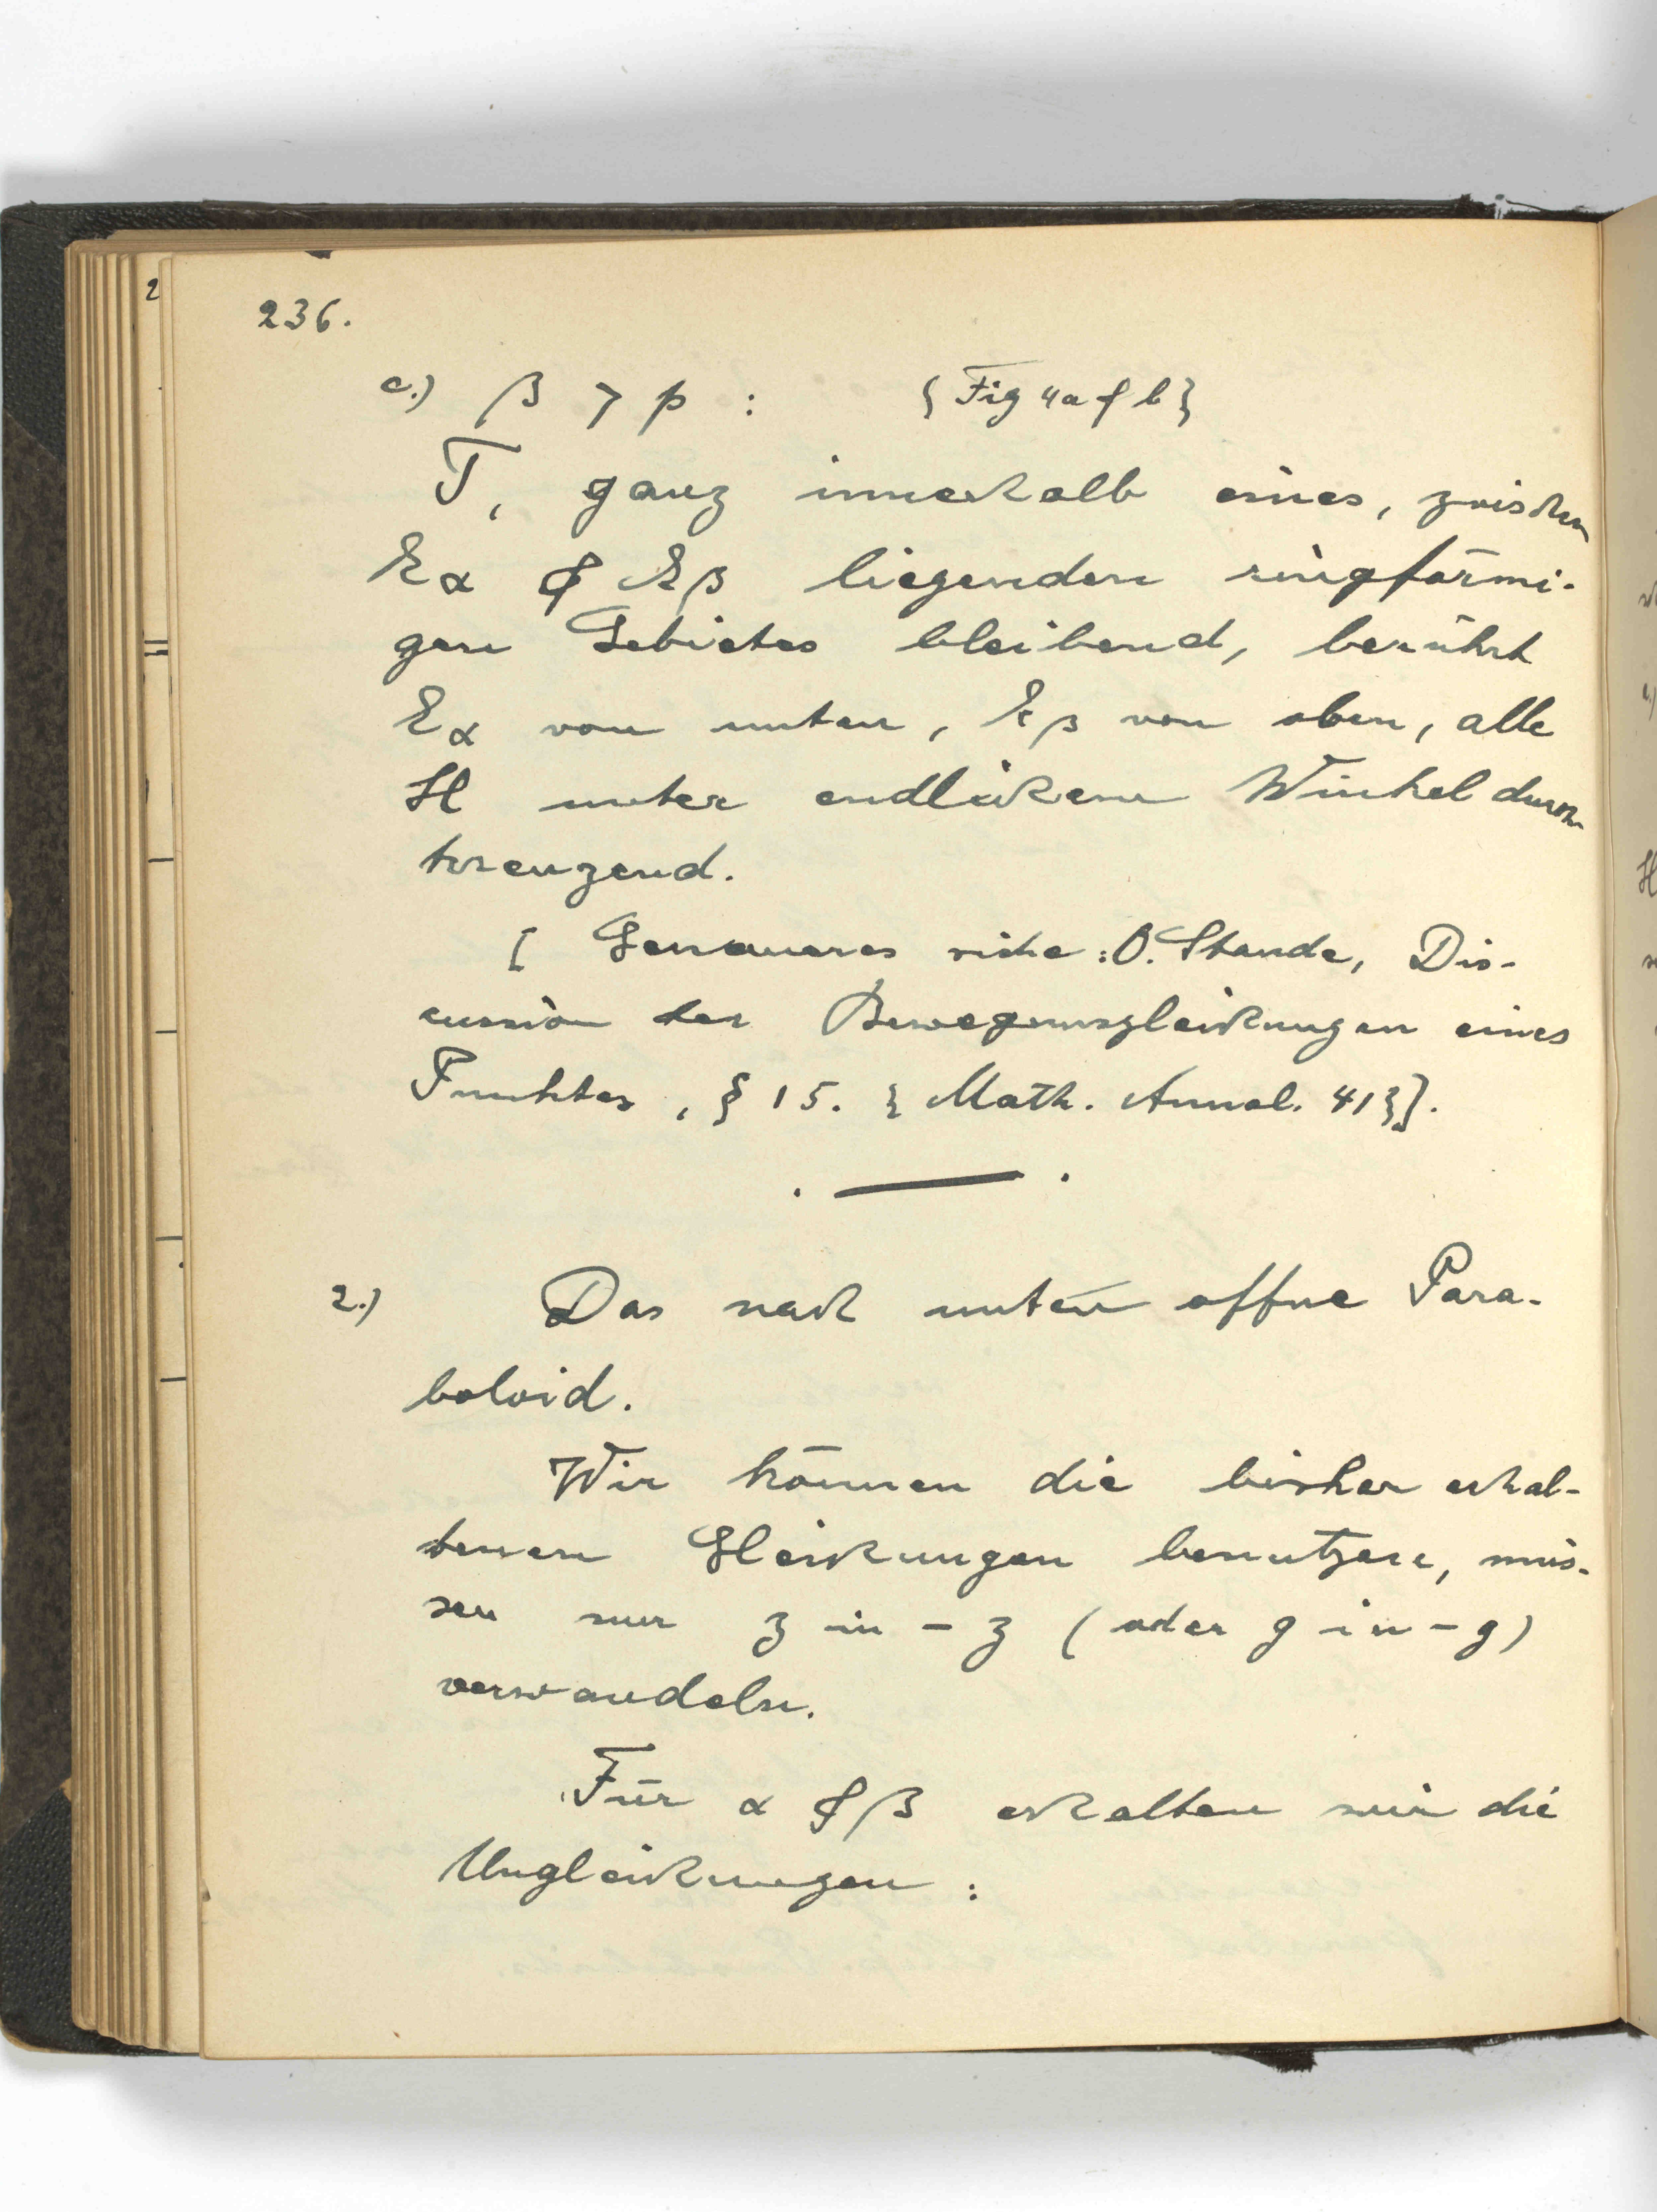 236.
c.) β > p : { Fig 4a & b }
T, ganz innerhalb eines, zwischen
Eα & Eβ liegenden ringförmi-
gen Gebietes bleibend, berührt
Eα von unten, Eβ von oben, alle
H unter endlichem Winkel durch-
kreuzend.
[ Genaueres siehe: O. Staude, Dis-
cussion der Bewegungsgleichungen eines
Punktes, § 15. { Math. Annal. 41 } ].
2.) Das nach unten offne Para-
boloid.
Wir können die bisher erhal-
tenen Gleichungen benutzen, müs-
sen nur z in - z ( oder g in - g )
verwandeln.
Für α & β erhalten wir die
Ungleichungen :